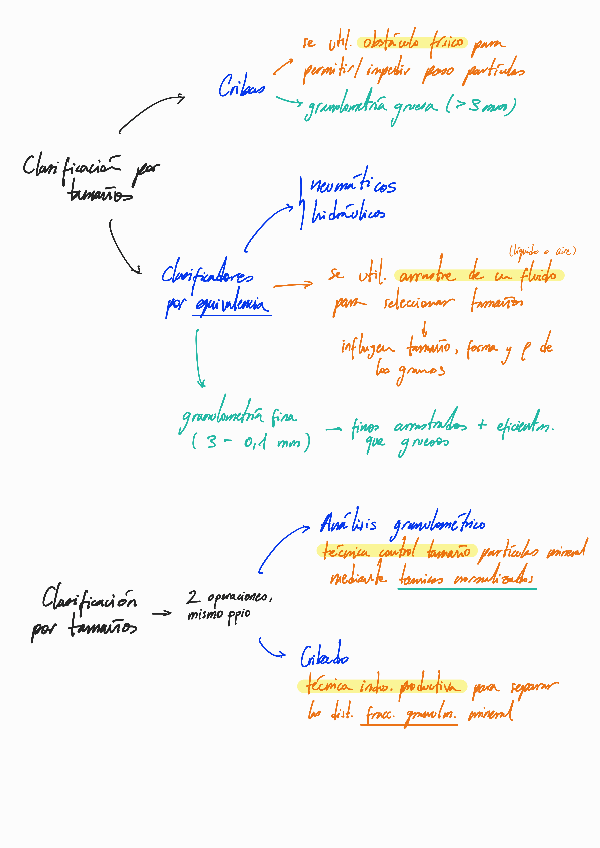 se util. obstáculo físico para
permitir/impedir paso partículas
Cribas
granulometría gruesa (> 3 mm)
Clasificación por
tamaños
neumáticos
hidráulicos
Clasificadores
por equivalencia
(líquido o aire)
se util. arrastre de un fluido
para seleccionar tamaños
influyen tamaño, forma y ρ de
los granos
granulometría fina
(3 - 0,1 mm)
finos arrastrados + eficientem.
que gruesos
Análisis granulométrico
técnica control tamaño partículas mineral
mediante tamices normalizados
Clasificación
por tamaños
2 operaciones,
mismo ppio
Cribado
técnica indus. productiva para separar
las dist. fracc. granulom. mineral